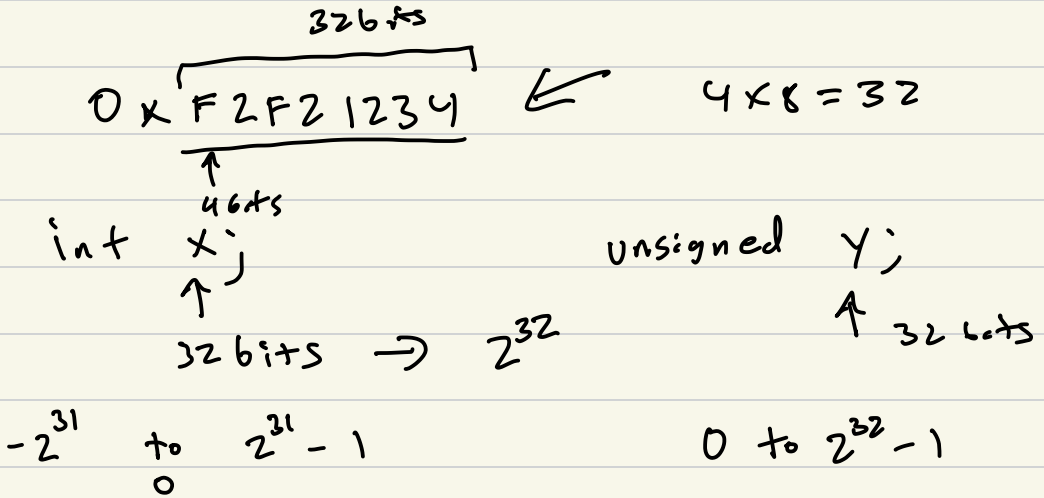 32 bits
0xF2F21234 4x8=32
4 bits
int x; unsigned y;
32 bits → 2^32 32 bits
-2^31 to 2^31 - 1 0 to 2^32 - 1
0